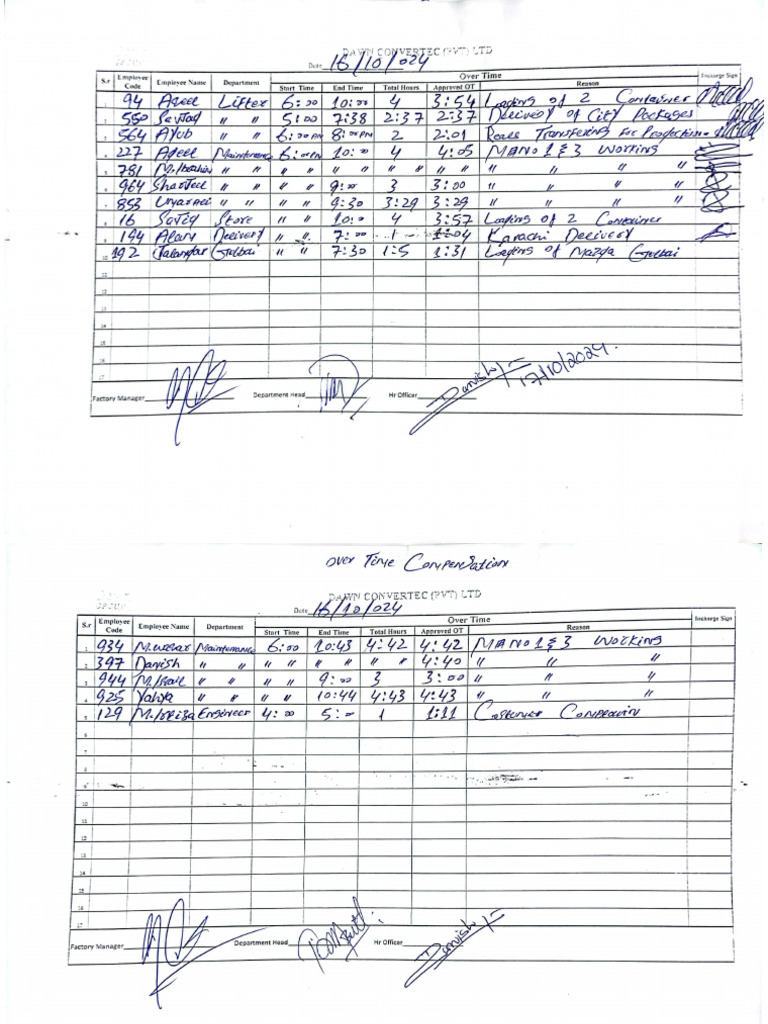 DAWN CONVERTEC (PVT) LTD
Date 16/10/024
S.r Employee Code Employee Name Department Over Time Incharge Sign
Start Time End Time Total Hours Approved OT Reason
1 94 Aqeel Lifter 6:00 10:00 4 3:54 Loading of 2 Container
2 550 Sajjad " " 5:00 7:38 2:37 2:37 Delivery of City Packages
3 564 Ayub " " 6:00PM 8:00PM 2 2:01 Rolls Transfering for Production
4 227 Aqeel Maintenance 6:00PM 10:00 4 4:05 MANO 1 & 3 Working
5 781 M.Ibrahim " " " " " " " " " " " " "
6 964 Sharjeel " " " " 9:00 3 3:00 " " "
7 853 " " " " 9:30 3:29 3:29 " " "
8 16 Store " " 10:0 4 3:57 Loading of 2 Container
9 194 Delivery " " 7:00 1 1:04 Karachi Delivery
10 192 Gulbai " " 7:30 1:5 1:31 Loading of Mazda Gulbai
11
12
13
14
15
16
17
Factory Manager Department Head Hr Officer Danish 17/10/2024.
Over Time Compensation
DAWN CONVERTEC (PVT) LTD
Date 16/10/024
S.r Employee Code Employee Name Department Over Time Incharge Sign
Start Time End Time Total Hours Approved OT Reason
1 934 Maintenance 6:00 10:43 4:42 4:42 MANO 1 & 3 Working
2 397 Danish " " " " " " " " 4:40 " " "
3 944 " " " " 9:00 3 3:00 " " "
4 925 Yahya " " " " 10:44 4:43 4:43 " " "
5 129 Engineer 4:00 5:00 1 1:11 Customer
6
7
8
9
10
11
12
13
14
15
16
17
Factory Manager Department Head Hr Officer Danish